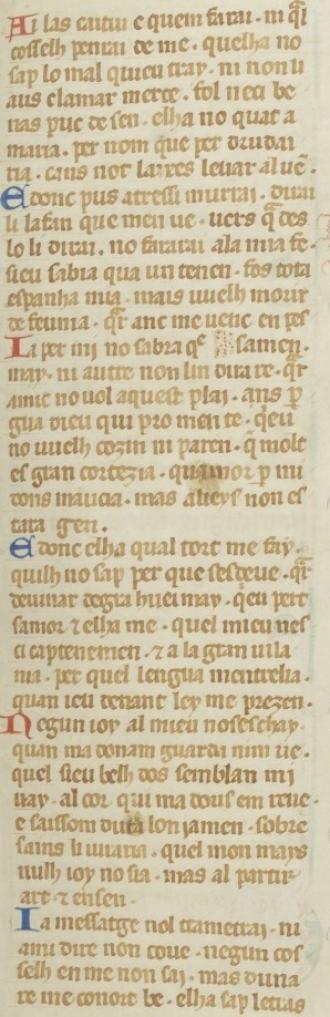 Ai las caitiu e quem farai. ni q̄l
cosselh penrai de me. quelha no
sap lo mal quieu tray. ni non li
aus clamar merce. fol nec be
nas puc de sen. elha no quat a
maria. per nom que per drudai
ria. caus not layxes leuar al uē.
E donc pus atressi murrai. dirai
li lafan que men ue. uers q̄ des
lo li dirai. no fararai ala mia fe.
sieu sabia qua un tenen. fos tota
espanha mia. mais vuelh morir
de feunia. q̄r anc me uenc en pes
Ia per mi no sabra q̄ samen.
may. ni autre non lin dira re. q̄r
amic no uol aquest plai. ans p̄
gua dieu qui pro men te. q̄eu
no vuelh cozin ni paren. q̄ molt
es gran cortezia. quamor p̄ mi
dons maucia. mas alieys non es
tara gen.
E donc elha qual tort me fay.
quilh no sap per que sesdeue. q̄r
deuinar degra huei may. q̄eu pert
samor ⁊ elha me. quel mieu nes
ci captenemen. ⁊ a la gran uila
nia. per quel lengua mentrelia.
quan ieu denant ley me prezen.
Negun ioy al mieu noseschay.
quan ma donam guarda nim ue.
quel sieu belh dos semblan mi
uay. al cor qui ma dous em reue.
e saissom dura lonjamen. sobre
sains li iuraria. quel mon mays
nulh ioy no sia. mas al partir
art ⁊ ensen.
Ia messatge nol trametrai. ni
ami dire non coue. negun cos
selh en me non sai. mas duna
re me conort be. elha sap letras